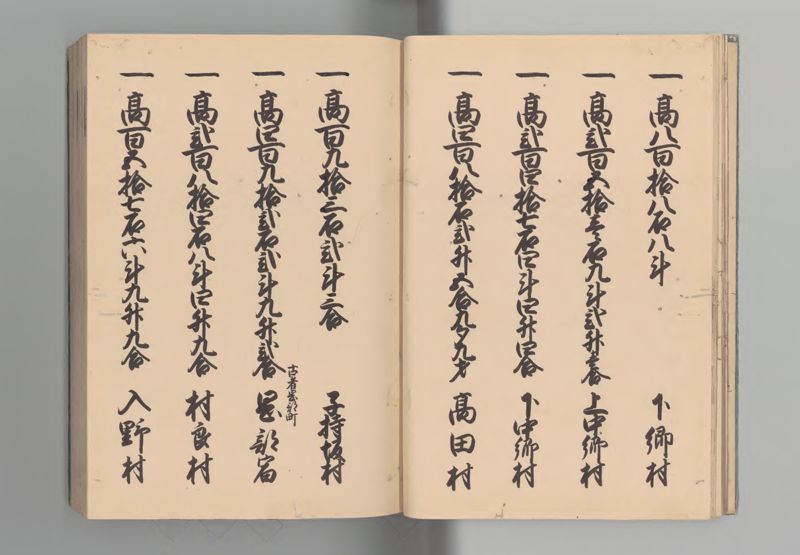 一 高八百拾八石八斗 下郷村
一 高弐百五拾壱石九斗弐升壱合 上中郷村
一 高弐百四拾七石四斗四升四合 下中郷村
一 高四百八拾石弐升五合九夕九才 高田村
一 高百九拾三石弐斗三合 子持坂村
古者岡部町
一 高四百九拾弐石弐斗九升弐合 岡部宿
一 高弐百八拾四石八斗四升九合 村良村
一 高百五拾七石六斗九升九合 入野村